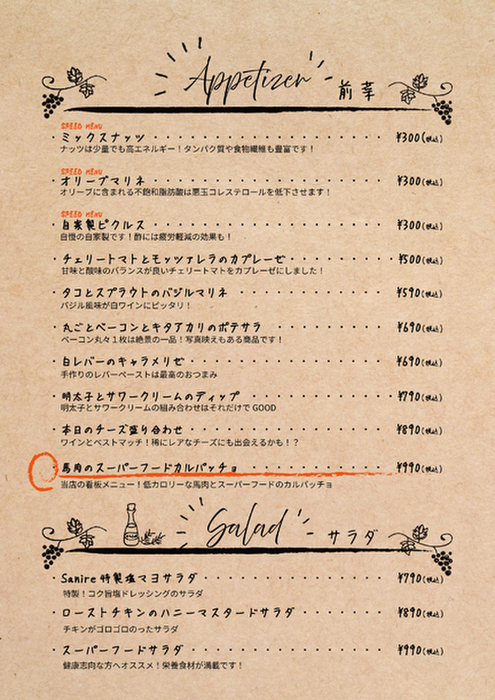 Appetizer 前菜
SPEED MENU
ミックスナッツ ¥300(税込)
ナッツは少量でも高エネルギー！タンパク質や食物繊維も豊富です！
SPEED MENU
オリーブマリネ ¥300(税込)
オリーブに含まれる不飽和脂肪酸は悪玉コレステロールを低下させます！
SPEED MENU
自家製ピクルス ¥300(税込)
自慢の自家製です！酢には疲労軽減の効果も！
チェリートマトとモッツァレラのカプレーゼ ¥500(税込)
甘味と酸味のバランスが良いチェリートマトをカプレーゼにしました！
タコとスプラウトのバジルマリネ ¥590(税込)
バジル風味が白ワインにピッタリ！
丸ごとベーコンとキタアカリのポテサラ ¥690(税込)
ベーコン丸々１枚は絶景の一品！写真映えもある商品です！
白レバーのキャラメリゼ ¥690(税込)
手作りのレバーペーストは最高のおつまみ
明太子とサワークリームのディップ ¥790(税込)
明太子とサワークリームの組み合わせはそれだけで GOOD
本日のチーズ盛り合わせ ¥890(税込)
ワインとベストマッチ！稀にレアなチーズにも出会えるかも！？
馬肉のスーパーフードカルパッチョ ¥990(税込)
当店の看板メニュー！低カロリーな馬肉とスーパーフードのカルパッチョ
Salad サラダ
Sanire 特製塩マヨサラダ ¥790(税込)
特製！コク旨塩ドレッシングのサラダ
ローストチキンのハニーマスタードサラダ ¥890(税込)
チキンがゴロゴロのったサラダ
スーパーフードサラダ ¥990(税込)
健康志向な方へオススメ！栄養食材が満載です！